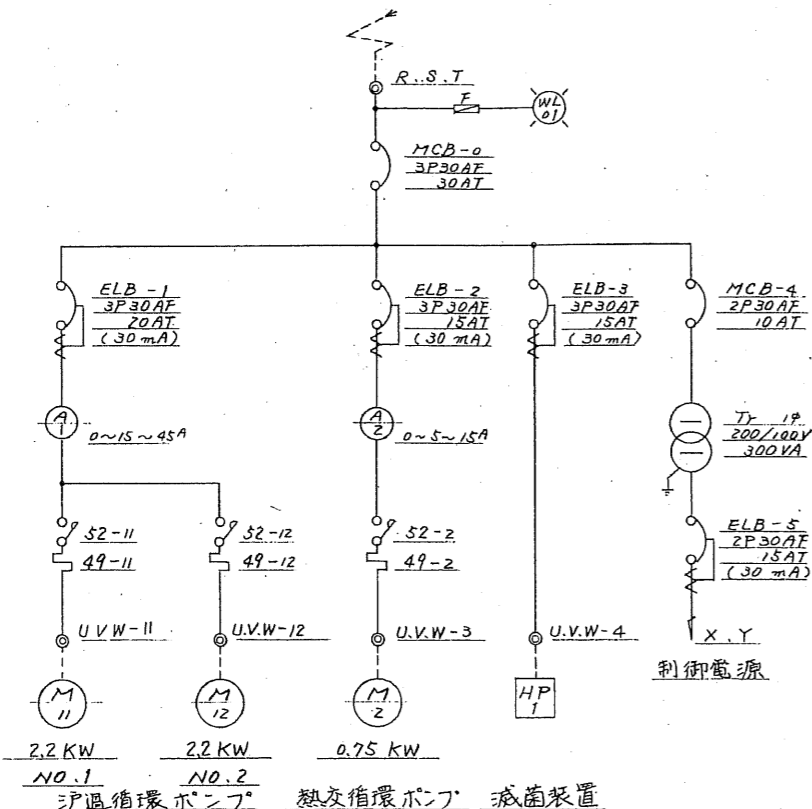 R.S.T
F
WL
01
MCB-0
3P30AF
30AT
ELB-1
3P30AF
20AT
(30mA)
ELB-2
3P30AF
15AT
(30mA)
ELB-3
3P30AF
15AT
(30mA)
MCB-4
2P30AF
10AT
A
1
0~15~45A
A
2
0~5~15A
Tr 1φ
200/100V
300VA
52-11
49-11
52-12
49-12
52-2
49-2
ELB-5
2P30AF
15AT
(30mA)
UVW-11
U.V.W-12
U.V.W-3
U.V.W-4
X.Y
制御電源
M
11
M
12
M
2
HP
1
2.2KW
2.2KW
0.75KW
NO.1
NO.2
沪過循環ポンプ
熱交循環ポンプ
滅菌装置